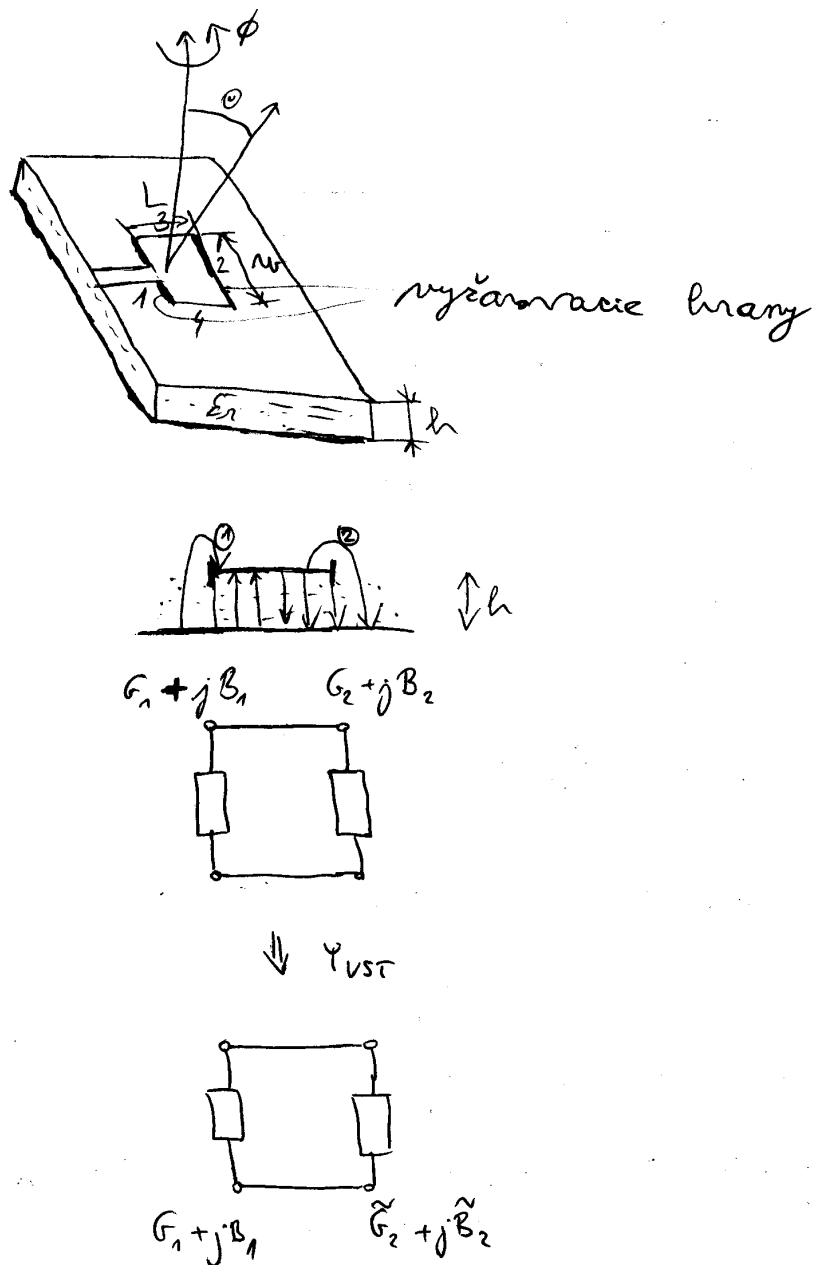 ϕ
Θ
L
3
2
w
1
4
vyžarovacie hrany
εr
h
1 2
h
G1 + jB1 G2 + jB2
YVST
G1 + jB1 G̃2 + jB̃2